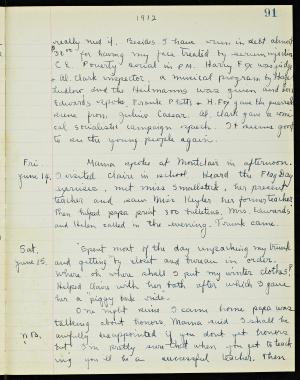 1912
91
really need it. Besides I have run in debt almost
$20.00 for having my face treated by serum injection
C.E. Poverty social in P.M. Harry Fox was judge
& Al. Clark inspector, a musical program by
Ludlow and the Heitmanns was given and Mrs.
Edwards spoke, Frank Pitts & H. Fox gave the
scene from Julius Caesar. Al. Clark gave a comical
socialist campaign speech. It seems good
to see the young people again.
Fri.
June 14.
Mama spoke at Montclair in afternoon.
I visited Claire in school. Heard the Flag Day
exercises, met Miss her present
teacher and saw Miss Keyler her former teacher.
Then helped papa print 300 bulletins. Mrs. Edwards
and Helen called in the evening. Trunk came.
Sat.
June 15.
Spent most of the day unpacking my trunk
and getting my closet and bureau in order.
Where oh where shall I put my winter clothes?
Helped Claire with her bath after which I gave
her a "piggy back ride".
N.B.
One night since I came home papa was
talking about honors. Mama said I shall be
awfully disappointed if you don't get honors
but I'm pretty sure that when you get to teaching
you'll be a successful teacher. Then